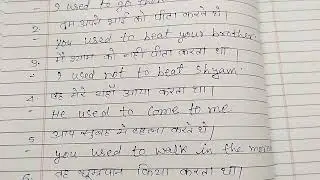 - I used to go
2. तुम अपने भाई को पीटा करते थे।
You used to beat your brother.
3. मैं श्याम को नहीं पीटा करता था।
- I used not to beat Shyam.
4. वह मेरे यहाँ आया करता था।
- He used to come to me.
5. आप सुबह में टहला करते थे।
- You used to walk in the
6. वह धूम्रपान किया करता था।